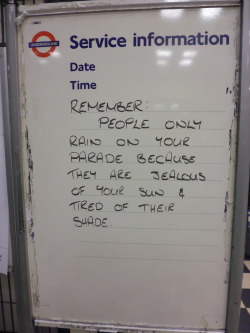 UNDERGROUND
Service information
Date
Time
REMEMBER:
PEOPLE ONLY
RAIN ON YOUR
PARADE BECAUSE
THEY ARE JEALOUS
OF YOUR SUN &
TIRED OF THEIR
SHADE.